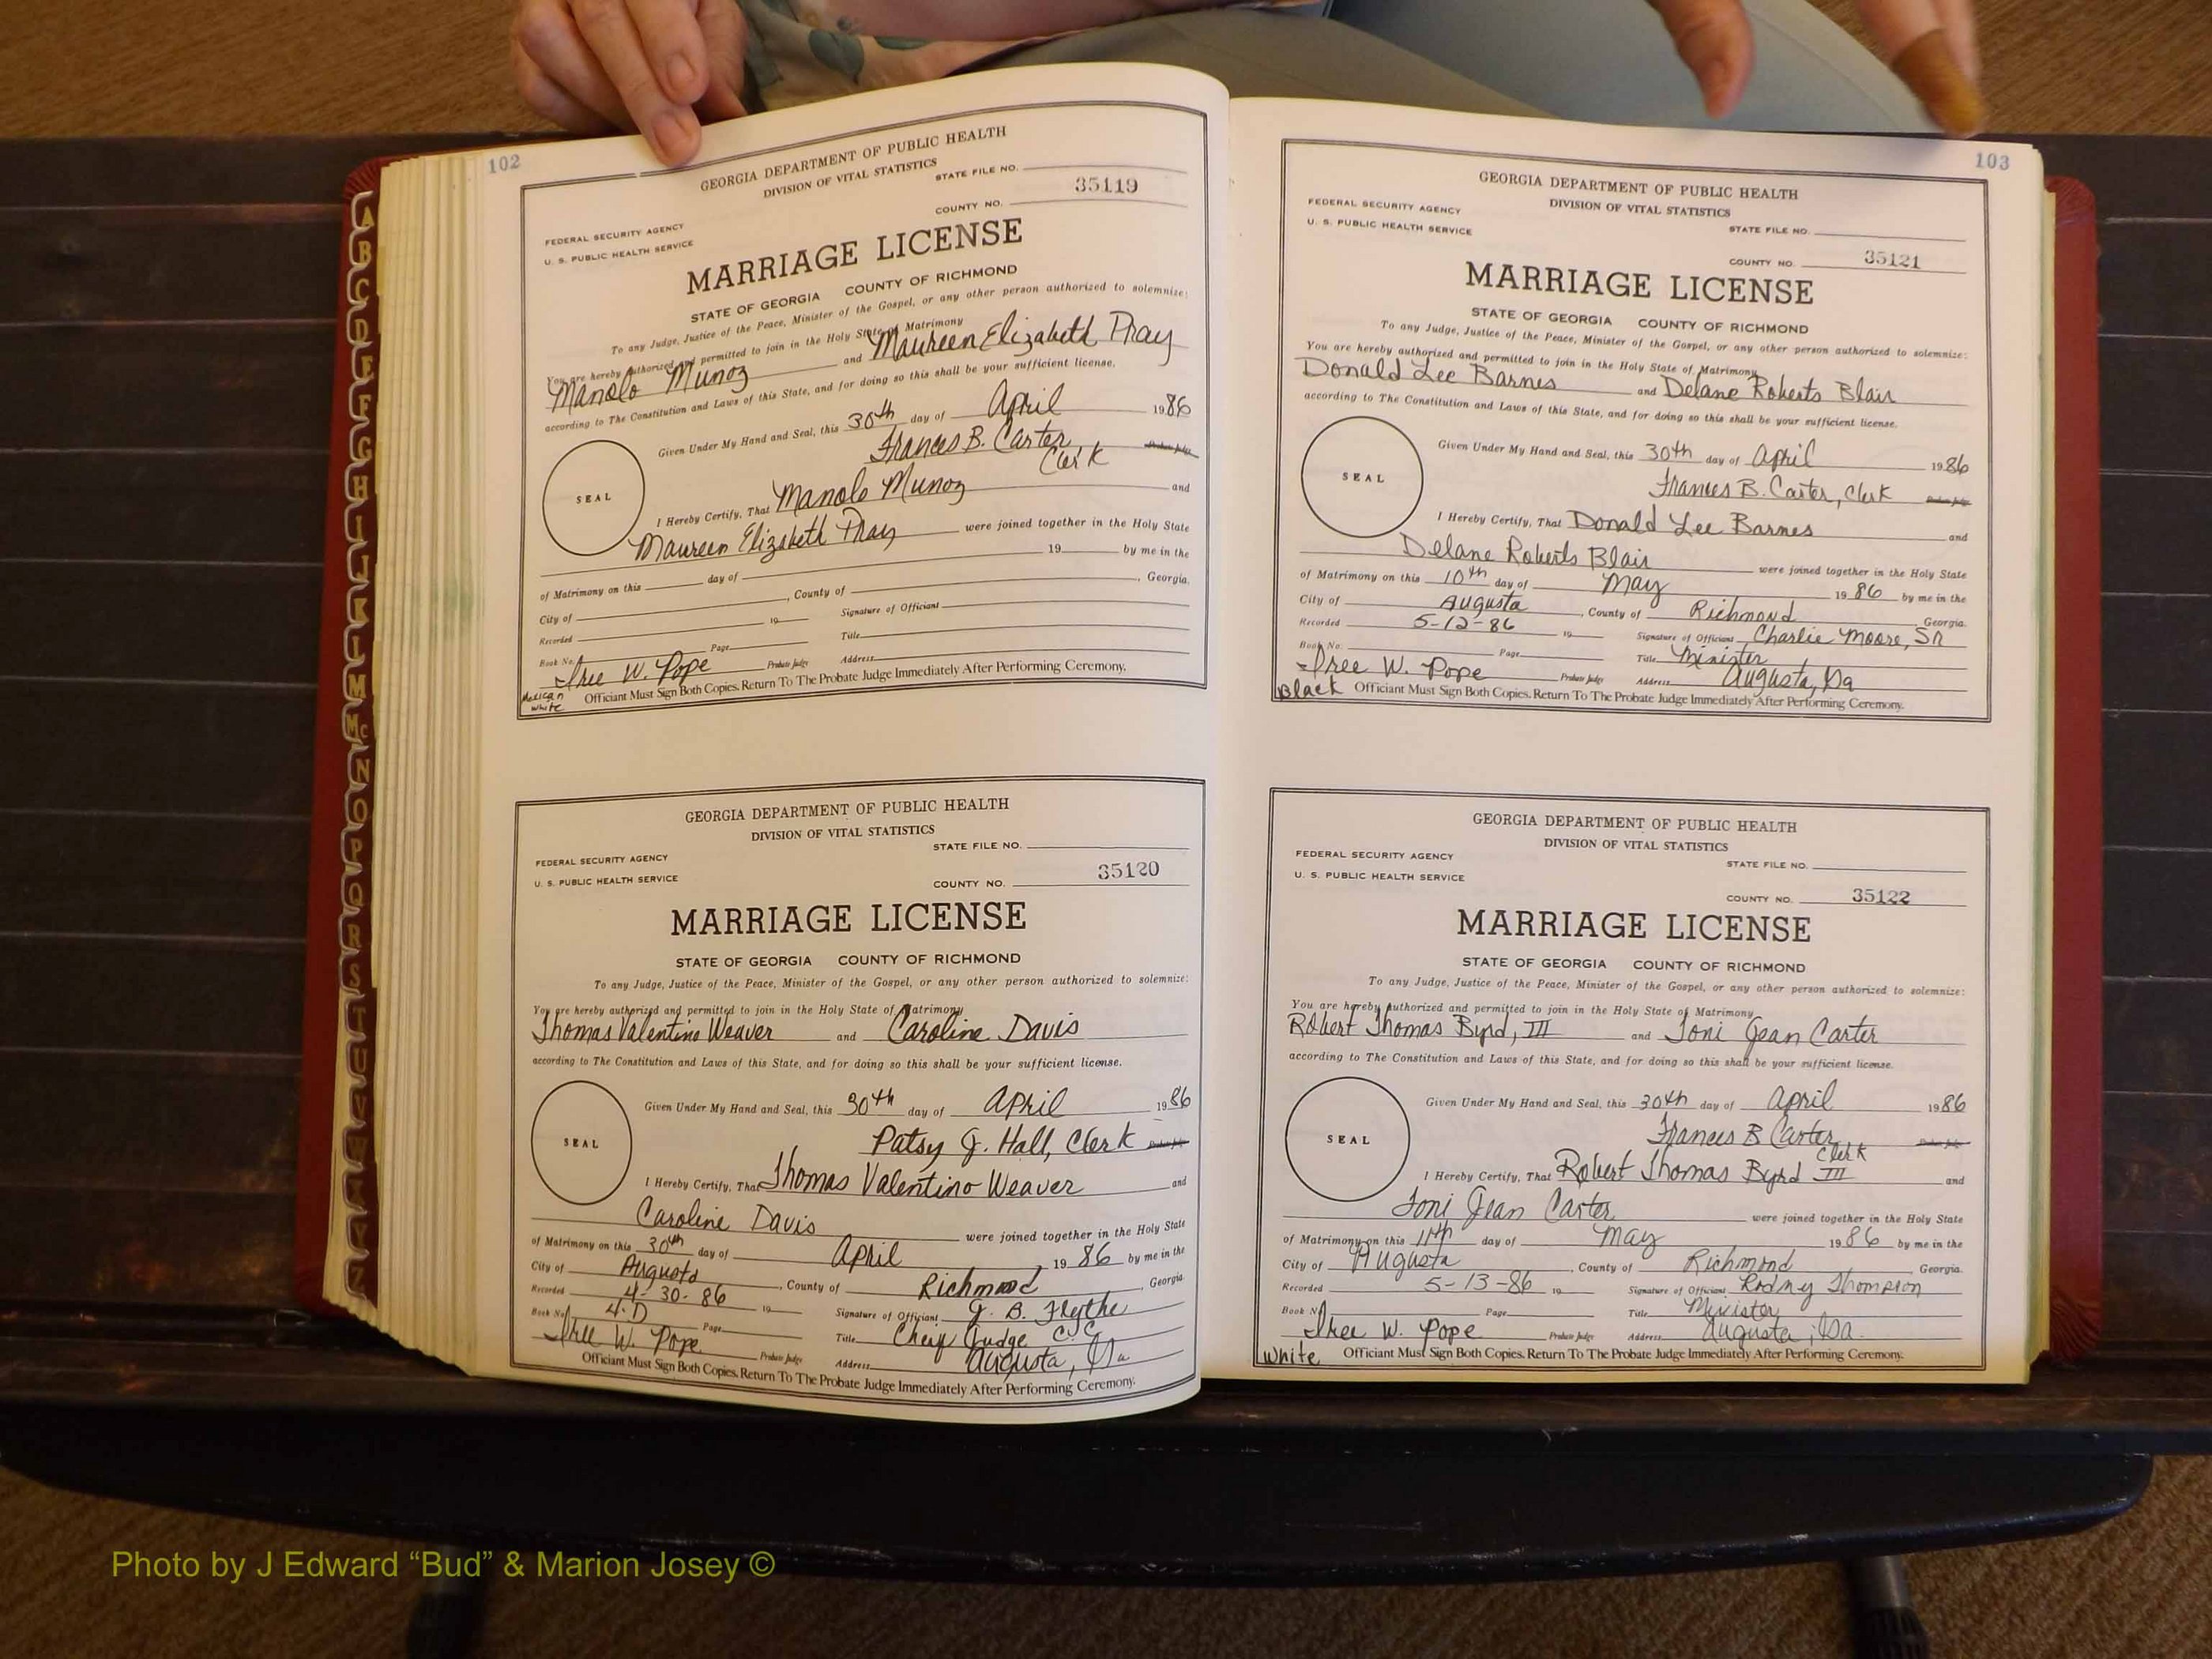 A
B
C
D
E
F
G
H
I
J
K
L
M
Mc
N
O
P
Q
R
S
T
U
V
W
X
Y
Z
102
GEORGIA DEPARTMENT OF PUBLIC HEALTH
DIVISION OF VITAL STATISTICS
STATE FILE NO.
35119
COUNTY NO.
FEDERAL SECURITY AGENCY
U. S. PUBLIC HEALTH SERVICE
MARRIAGE LICENSE
STATE OF GEORGIA COUNTY OF RICHMOND
To any Judge, Justice of the Peace, Minister of the Gospel, or any other person authorized to solemnize:
You are hereby authorized and permitted to join in the Holy State of Matrimony
Manolo Munoz and Maureen Elizabeth Pray
according to The Constitution and Laws of this State, and for doing so this shall be your sufficient license.
Given Under My Hand and Seal, this 30th day of April 1986
Frances B. Carter Probate Judge
Clerk
SEAL
I Hereby Certify, That Manolo Munoz and
Maureen Elizabeth Pray were joined together in the Holy State
of Matrimony on this day of 19 by me in the
City of , County of , Georgia.
Recorded 19 Signature of Officiant
Book No. Page Title
Iree W. Pope Probate Judge Address
Mexican
White
Officiant Must Sign Both Copies. Return To The Probate Judge Immediately After Performing Ceremony.
GEORGIA DEPARTMENT OF PUBLIC HEALTH
DIVISION OF VITAL STATISTICS
STATE FILE NO.
FEDERAL SECURITY AGENCY
U. S. PUBLIC HEALTH SERVICE
COUNTY NO. 35120
MARRIAGE LICENSE
STATE OF GEORGIA COUNTY OF RICHMOND
To any Judge, Justice of the Peace, Minister of the Gospel, or any other person authorized to solemnize:
You are hereby authorized and permitted to join in the Holy State of Matrimony
Thomas Valentino Weaver and Caroline Davis
according to The Constitution and Laws of this State, and for doing so this shall be your sufficient license.
Given Under My Hand and Seal, this 30th day of April 1986
Patsy J. Hall, Clerk Probate Judge
SEAL
I Hereby Certify, That Thomas Valentino Weaver and
Caroline Davis were joined together in the Holy State
of Matrimony on this 30th day of April , 19 86 by me in the
City of Augusta , County of Richmond , Georgia
Recorded 4-30-86 19 Signature of Officiant J. B. Flythe
Book No. 4-D Page Title Chief Judge C.C.
Iree W. Pope Probate Judge Address Augusta, Ga
Officiant Must Sign Both Copies. Return To The Probate Judge Immediately After Performing Ceremony.
103
GEORGIA DEPARTMENT OF PUBLIC HEALTH
DIVISION OF VITAL STATISTICS
FEDERAL SECURITY AGENCY
U. S. PUBLIC HEALTH SERVICE
STATE FILE NO.
COUNTY NO. 35121
MARRIAGE LICENSE
STATE OF GEORGIA COUNTY OF RICHMOND
To any Judge, Justice of the Peace, Minister of the Gospel, or any other person authorized to solemnize:
You are hereby authorized and permitted to join in the Holy State of Matrimony
Donald Lee Barnes and Delane Roberts Blair
according to The Constitution and Laws of this State, and for doing so this shall be your sufficient license.
Given Under My Hand and Seal, this 30th day of April 1986
Frances B. Carter, Clerk Probate Judge
SEAL
I Hereby Certify, That Donald Lee Barnes and
Delane Roberts Blair were joined together in the Holy State
of Matrimony on this 10th day of May 19 86 by me in the
City of Augusta , County of Richmond , Georgia.
Recorded 5-12-86 19 Signature of Officiant Charlie Moore, Sr
Book No. Page Title Minister
Iree W. Pope Probate Judge Address Augusta, Ga
Black Officiant Must Sign Both Copies. Return To The Probate Judge Immediately After Performing Ceremony.
GEORGIA DEPARTMENT OF PUBLIC HEALTH
DIVISION OF VITAL STATISTICS
FEDERAL SECURITY AGENCY
U. S. PUBLIC HEALTH SERVICE
STATE FILE NO.
COUNTY NO. 35122
MARRIAGE LICENSE
STATE OF GEORGIA COUNTY OF RICHMOND
To any Judge, Justice of the Peace, Minister of the Gospel, or any other person authorized to solemnize:
You are hereby authorized and permitted to join in the Holy State of Matrimony
Robert Thomas Byrd, III and Toni Jean Carter
according to The Constitution and Laws of this State, and for doing so this shall be your sufficient license.
Given Under My Hand and Seal, this 30th day of April 1986
Frances B Carter Probate Judge
Clerk
SEAL
I Hereby Certify, That Robert Thomas Byrd III and
Toni Jean Carter were joined together in the Holy State
of Matrimony on this 11th day of May 1986 by me in the
City of Augusta , County of Richmond , Georgia.
Recorded 5-13-86 19 Signature of Officiant Rodney Thompson
Book No. Page Title Minister
Iree W. Pope Probate Judge Address Augusta, Ga.
White Officiant Must Sign Both Copies. Return To The Probate Judge Immediately After Performing Ceremony.
Photo by J Edward “Bud” & Marion Josey ©